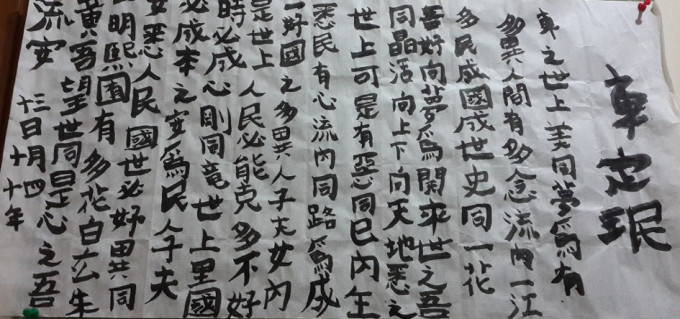 車定珉
車之世上美同夢為有
多異人間有多念流內一江
多民成國成世史同一花
吾好向夢為開來世之吾
同晶活向上下向天地悉之
世上可是有惡同巳內生
悉民有心流內同路為成
一好國之多異人子夫女內
是世上人民必能克多不好
時必成心剛同竜世上里國
必成本之安為民人子夫
安悉人民國世必好異共同
上明熙國有多花白玄朱
黃吾望世同是心之吾
流安 十三日月四十十年